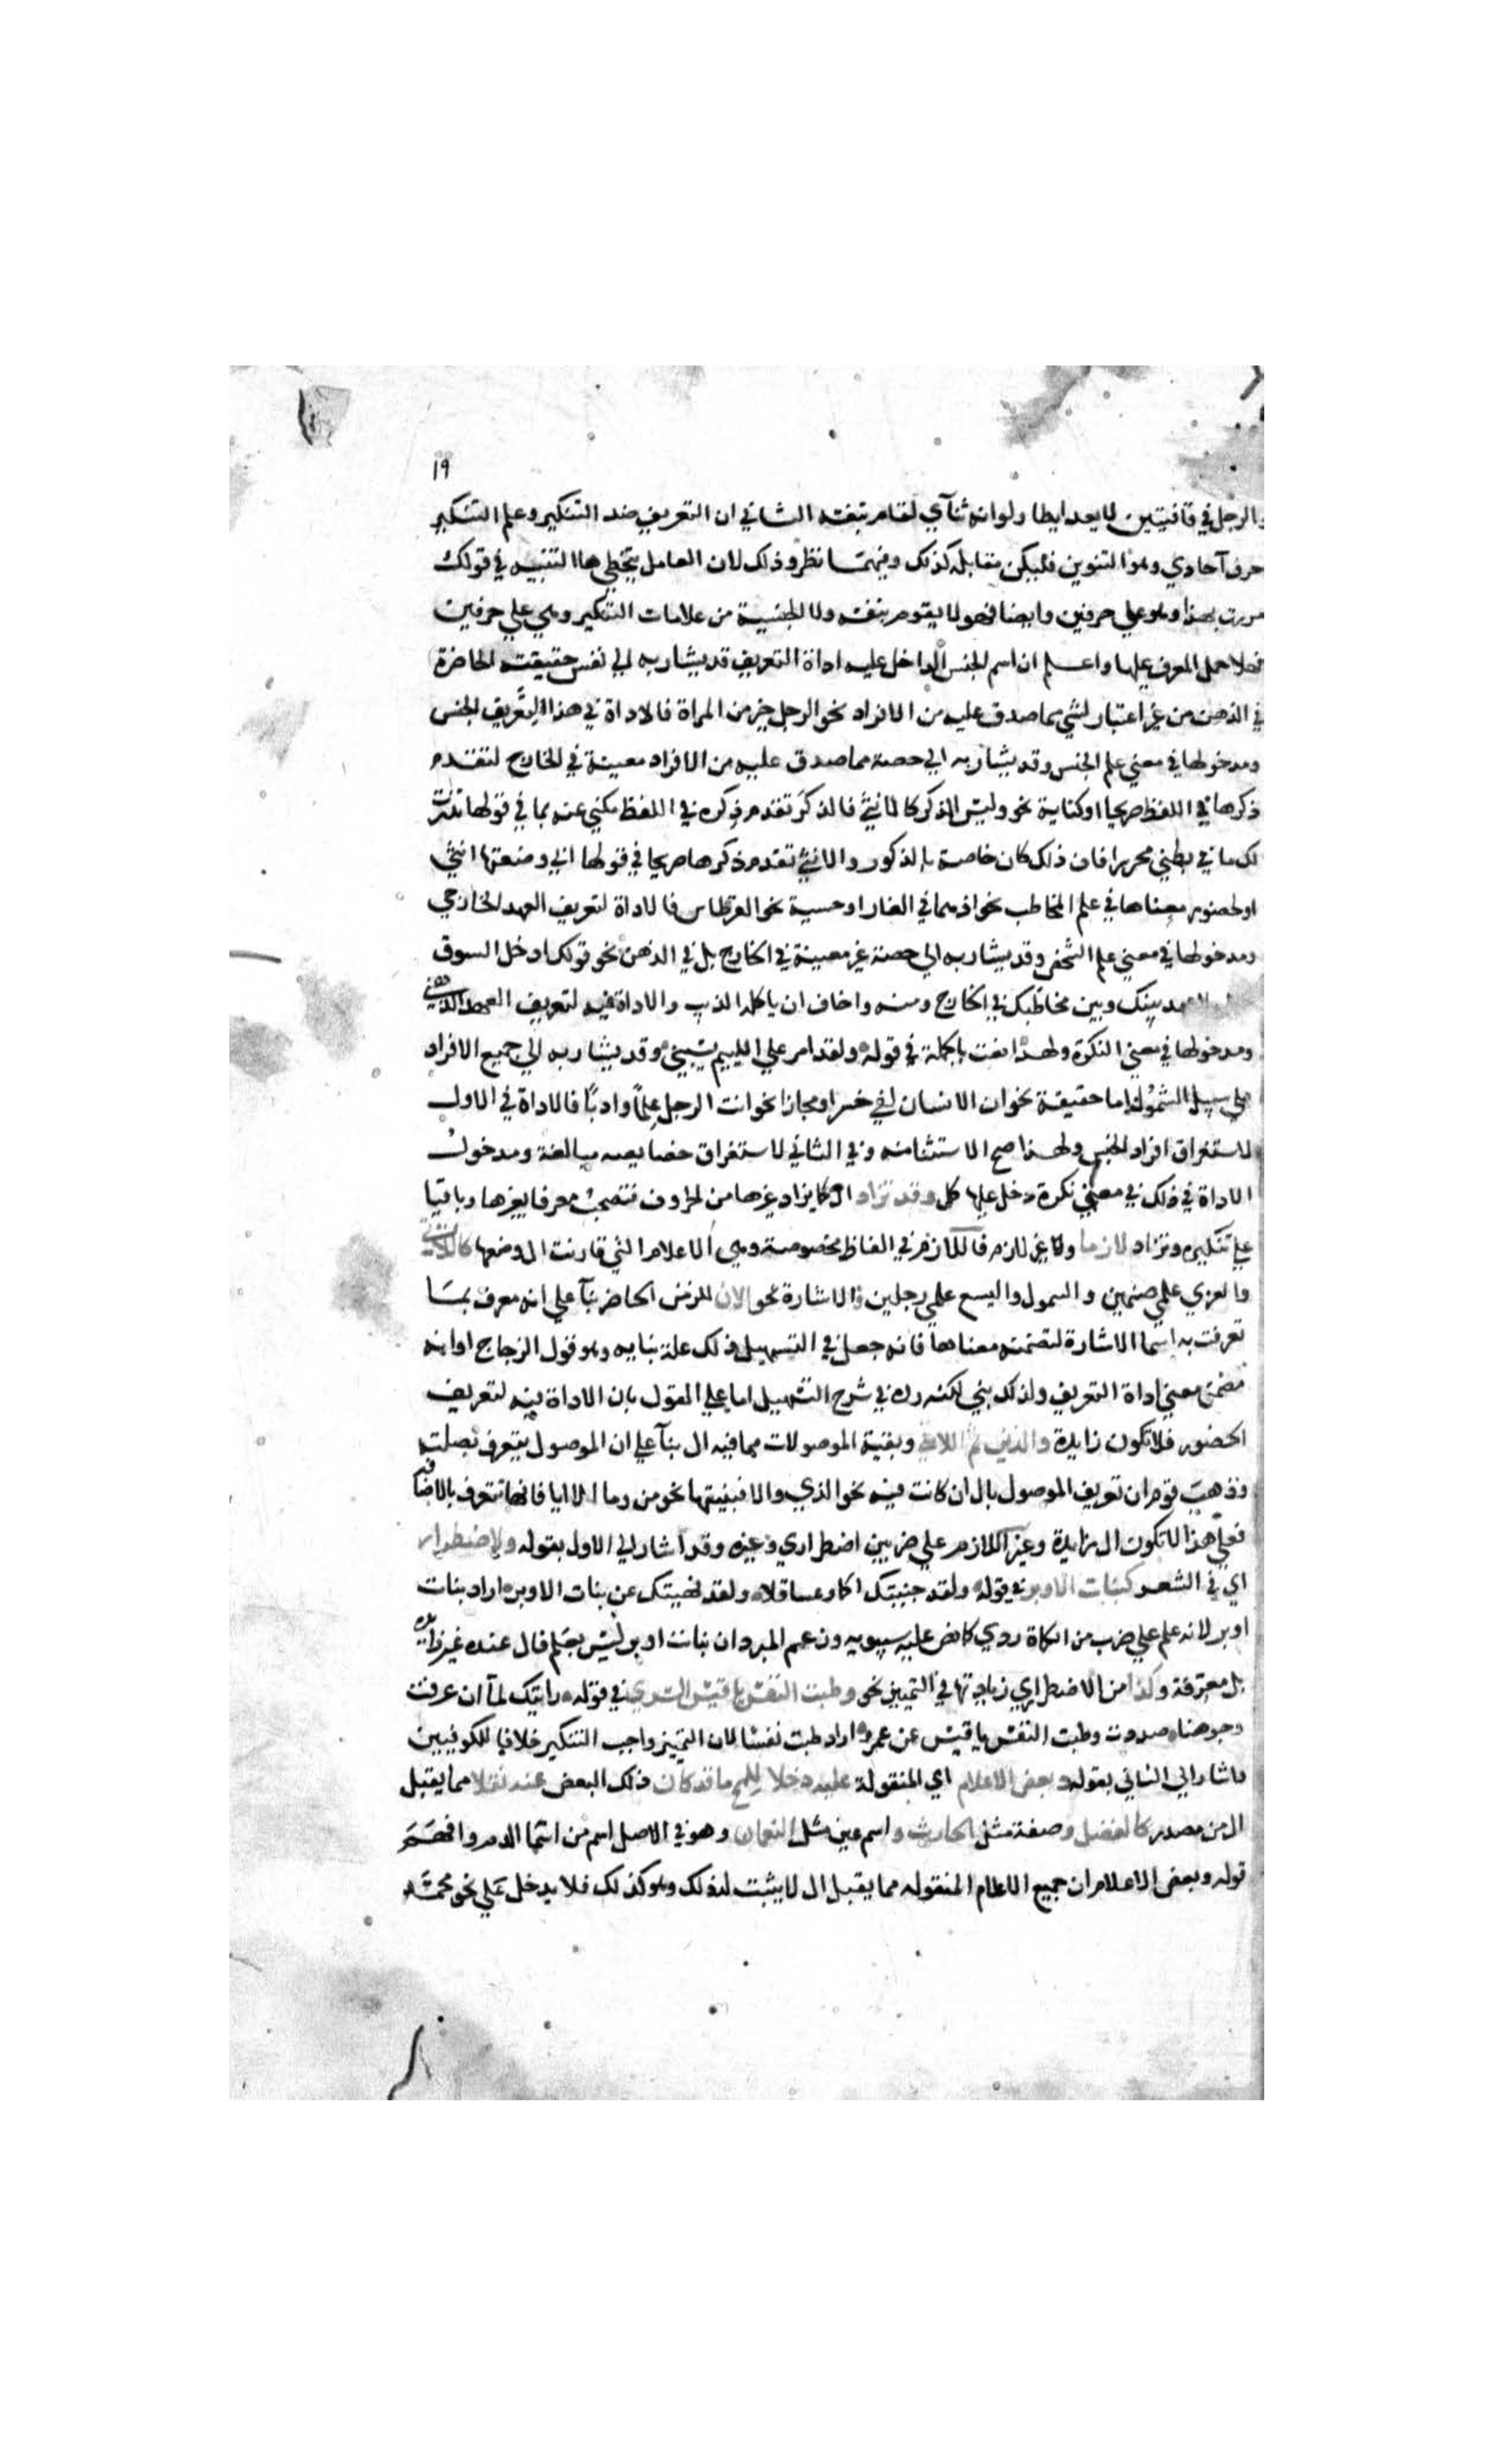 ١٩
والرجل في قافيتين لا يعد ايطا ولو انه ثنآي لقام بنفسه الثاني ان التعريف ضد التنكير وعلم التنكير
حرف آحادي وهو التنوين فليكن مقابله كذلك وفيهما نظر وذلك لان العامل يتخطي ها التنبيه في قولك
مررت بهذا وهو علي حرفين وايضا فهو لا يقوم بنفسه ولا الجنسية من علامات التنكير وهي علي حرفين
فهلا حمل المعرف عليها واعلم ان اسم الجنس الداخل عليه اداة التعريف قد يشار به الي نفس حقيقته الحاضرة
في الذهن من غير اعتبار لشي مما صدق عليه من الافراد نحو الرجل خير من المراة فالاداة في هذا لتعريف الجنس
ومدخولها في معني علم الجنس وقد يشار به الي حصة مما صدق عليه من الافراد معينة في الخارج لتقدم
ذكرها في اللفظ صريحا او كناية نحو وليس الذكر كالانثي فالذكر تقدم ذكره في اللفظ مكني عنه بما في قولها نذرت
لك ما في بطني محررا فان ذلك كان خاصة بالذكور والانثي تقدم ذكرها صريحا في قولها اني وضعتها انثي
او لحضور معناها في علم المخاطب نحو اذ هما في الغار او حسية نحو القرطاس فالاداة لتعريف العهد الخارجي
ومدخولها في معني علم الشخص وقد يشار به الي حصة غير معينة في الخارج بل في الذهن نحو قولك ادخل السوق
عهد بينك وبين مخاطبك في الخارج ومنه واخاف ان ياكله الذيب والاداة فيه لتعريف العهد الذهني
ومدخولها في معني النكرة ولهذا نعت بالجملة في قوله ولقد امر علي اللييم يسبني وقد يشار به الي جميع الافراد
علي سبيل الشمول اما حقيقة نحو ان الانسان لفي خسر او مجازا نحو انت الرجل علمًا وادبًا فالاداة في الاول
لاستغراق افراد الجنس ولهذا صح الاستثنا منه وفي الثاني لاستغراق خصايصه مبالغة ومدخول
الاداة في ذلك في معني نكرة دخل عليها كل وقد تزاد ال كما يزاد غيرها من الحروف فتصحب معرفا بغيرها وباقيا
علي تنكيره وتزاد لازما ولا غير لازم فاللازم في الفاظ مخصوصة وهي الاعلام التي قارنت ال وضعها كاللات
والعزي علمي صنمين والسمول واليسع علمي رجلين والاشارة نحو الان للزمن الحاضر بنآ علي انه معرف بما
تعرفت به اسما الاشارة لتضمنه معناها فانه جعل في التسهيل ذلك علة بنايه وهو قول الزجاج او انه
مضمن معني اداة التعريف ولذلك بني لكنه رده في شرح التسهيل اما علي القول بان الاداة فيه لتعريف
الحضور فلا تكون زايدة والذين ثم اللاتي وبقية الموصولات مما فيه ال بنآ علي ان الموصول يتعرف بصلته
وذهب قوم ان تعريف الموصول بال ان كانت فيه نحو الذي والا فبنيتها نحو من وما الا ايا فانها تتعرف بالاضافة
فعلي هذا لا تكون ال زايدة وغير اللازم علي ضربين اضطراري وغيره وقد اشار الي الاول بقوله ولاضطرار
اي في الشعر كبنات الاوبر في قوله ولقد جنيتك اكاو عساقلا ولقد نهيتك عن بنات الاوبر اراد بنات
اوبر لانه علم علي ضرب من الكماة ردي كما نص عليه سيبويه وزعم المبرد ان بنات اوبر ليس بعلم فال عنده غير زايدة
بل معرفة وكذا من الاضطراري زيادتها في التمييز نحو وطبت النفس يا قيس السري في قوله رايتك لمآ ان عرفت
وجوهنا صددت وطبت النفس يا قيس عن عمرو اراد طبت نفسا لان التمييز واجب التنكير خلافا للكوفيين
واشار الي الثاني بقوله وبعض الاعلام اي المنقولة عليه دخلا للمح ما قد كان ذلك البعض عنه نقلا مما يقبل
ال من مصدر كالفضل وصفة مثل الحارث واسم عين مثل النعمان وهو في الاصل اسم من اسما الدم وافهم
قوله وبعض الاعلام ان جميع الاعلام المنقوله مما يقبل ال لا يثبت له ذلك وهو كذلك فلا يدخل علي نحو محمد